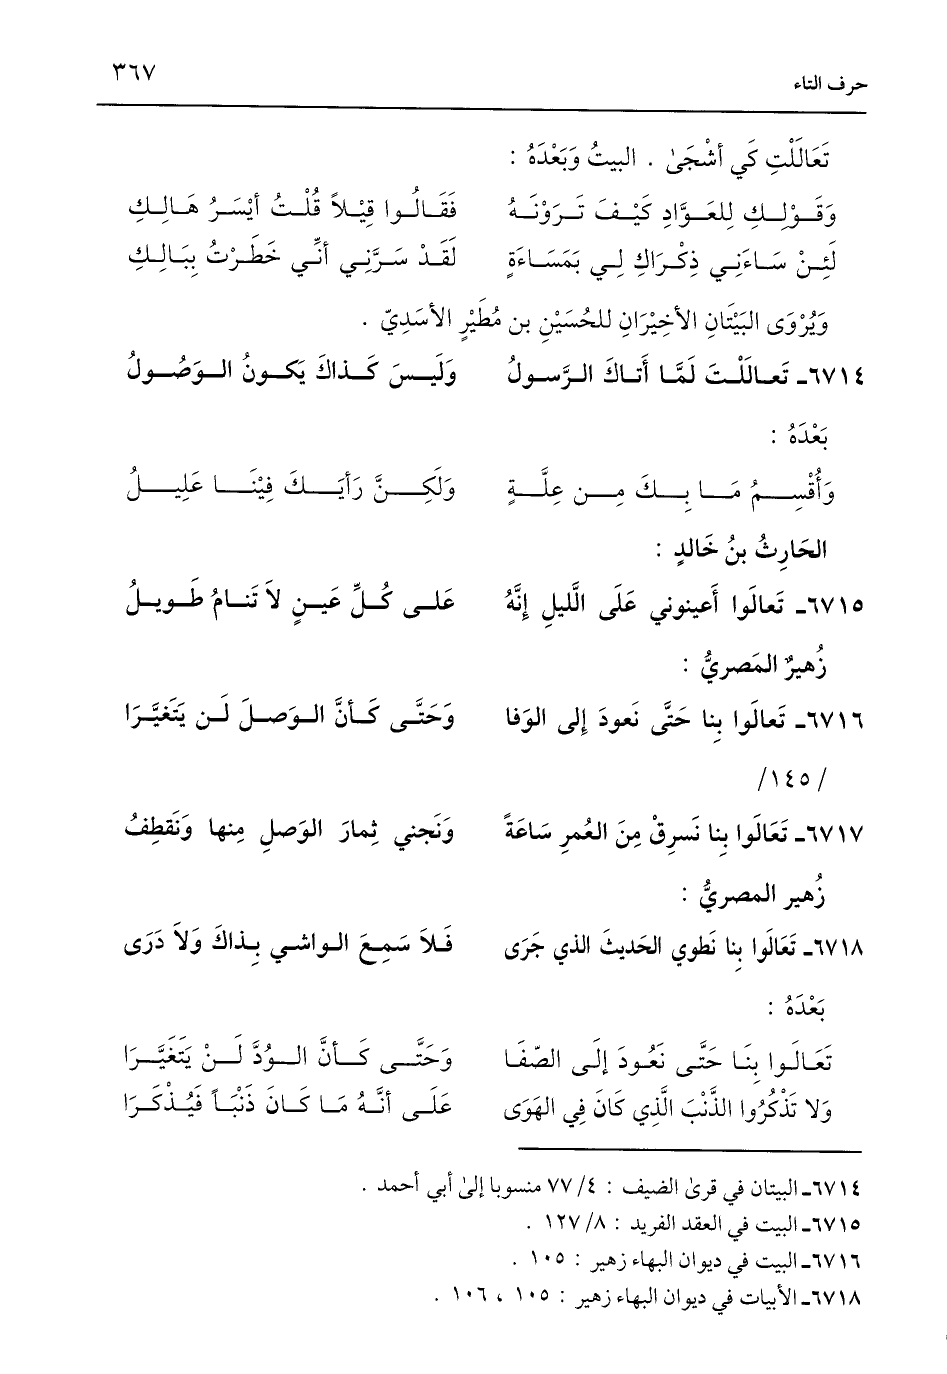 حرف التاء ٣٦٧
تَعَالَلْتِ كَي أشْجَىٰ . البيتُ وَبَعْدَهُ :
وَقَوْلِكِ لِلعَوَّادِ كَيْفَ تَرَوْنَهُ فَقَالُوا قِيْلاً قُلْتُ أيْسَرُ هَالِكِ
لَئِنْ سَاءَنِي ذِكْرَاكِ لِي بِمَسَاءَةٍ لَقَدْ سَرَّنِي أنِّي خَطَرْتُ بِبَالِكِ
وَيُرْوَى البَيْتَانِ الأخِيْرَانِ للحُسَيْنِ بن مُطَيْرٍ الأسَدِيّ .
٦٧١٤ـ تَعالَلْتَ لَمَّا أَتاكَ الرَّسولُ وَلَيسَ كَذاكَ يَكونُ الوَصُولُ
بَعْدَهُ :
وَأُقْسِمُ مَا بِكَ مِن عِلَّةٍ وَلَكِنَّ رَأيَكَ فِيْنَا عَلِيلُ
الحَارِثُ بنُ خَالدٍ :
٦٧١٥ـ تَعالَوا أَعينوني عَلَى اللَّيلِ إِنَّهُ عَلى كُلِّ عَينٍ لاَ تَنامُ طَويلُ
زُهيرٌ المَصريُّ :
٦٧١٦ـ تَعالَوا بِنا حَتَّى نَعودَ إِلى الوَفا وَحَتَّى كَأنَّ الوَصلَ لَن يَتَغيَّرَا
/١٤٥/
٦٧١٧ـ تَعَالَوا بِنا نَسرِقْ مِنَ العُمرِ سَاعَةً وَنَجني ثِمارَ الوَصلِ مِنها وَنَقطِفُ
زُهير المصريُّ :
٦٧١٨ـ تَعَالَوا بِنا نَطوي الحَديثَ الذي جَرَى فَلاَ سَمِعَ الواشي بِذاكَ وَلاَ دَرَى
بَعْدَهُ :
تَعَالَوا بِنَا حَتَّى نَعُودَ إلَى الصّفَا وَحَتَّى كَأنَّ الوُدَّ لَنْ يَتَغَيَّرَا
وَلا تَذْكُرُوا الذَّنْبَ الَّذِي كَانَ فِي الهَوَى عَلَى أنَّهُ مَا كَانَ ذَنْبَاً فَيُذْكَرَا
٦٧١٤ـ البيتان في قرىٰ الضيف : ٤/ ٧٧ منسوبا إلىٰ أبي أحمد .
٦٧١٥ـ البيت في العقد الفريد : ٨/ ١٢٧ .
٦٧١٦ـ البيت في ديوان البهاء زهير : ١٠٥ .
٦٧١٨ـ الأبيات في ديوان البهاء زهير : ١٠٥ ، ١٠٦ .